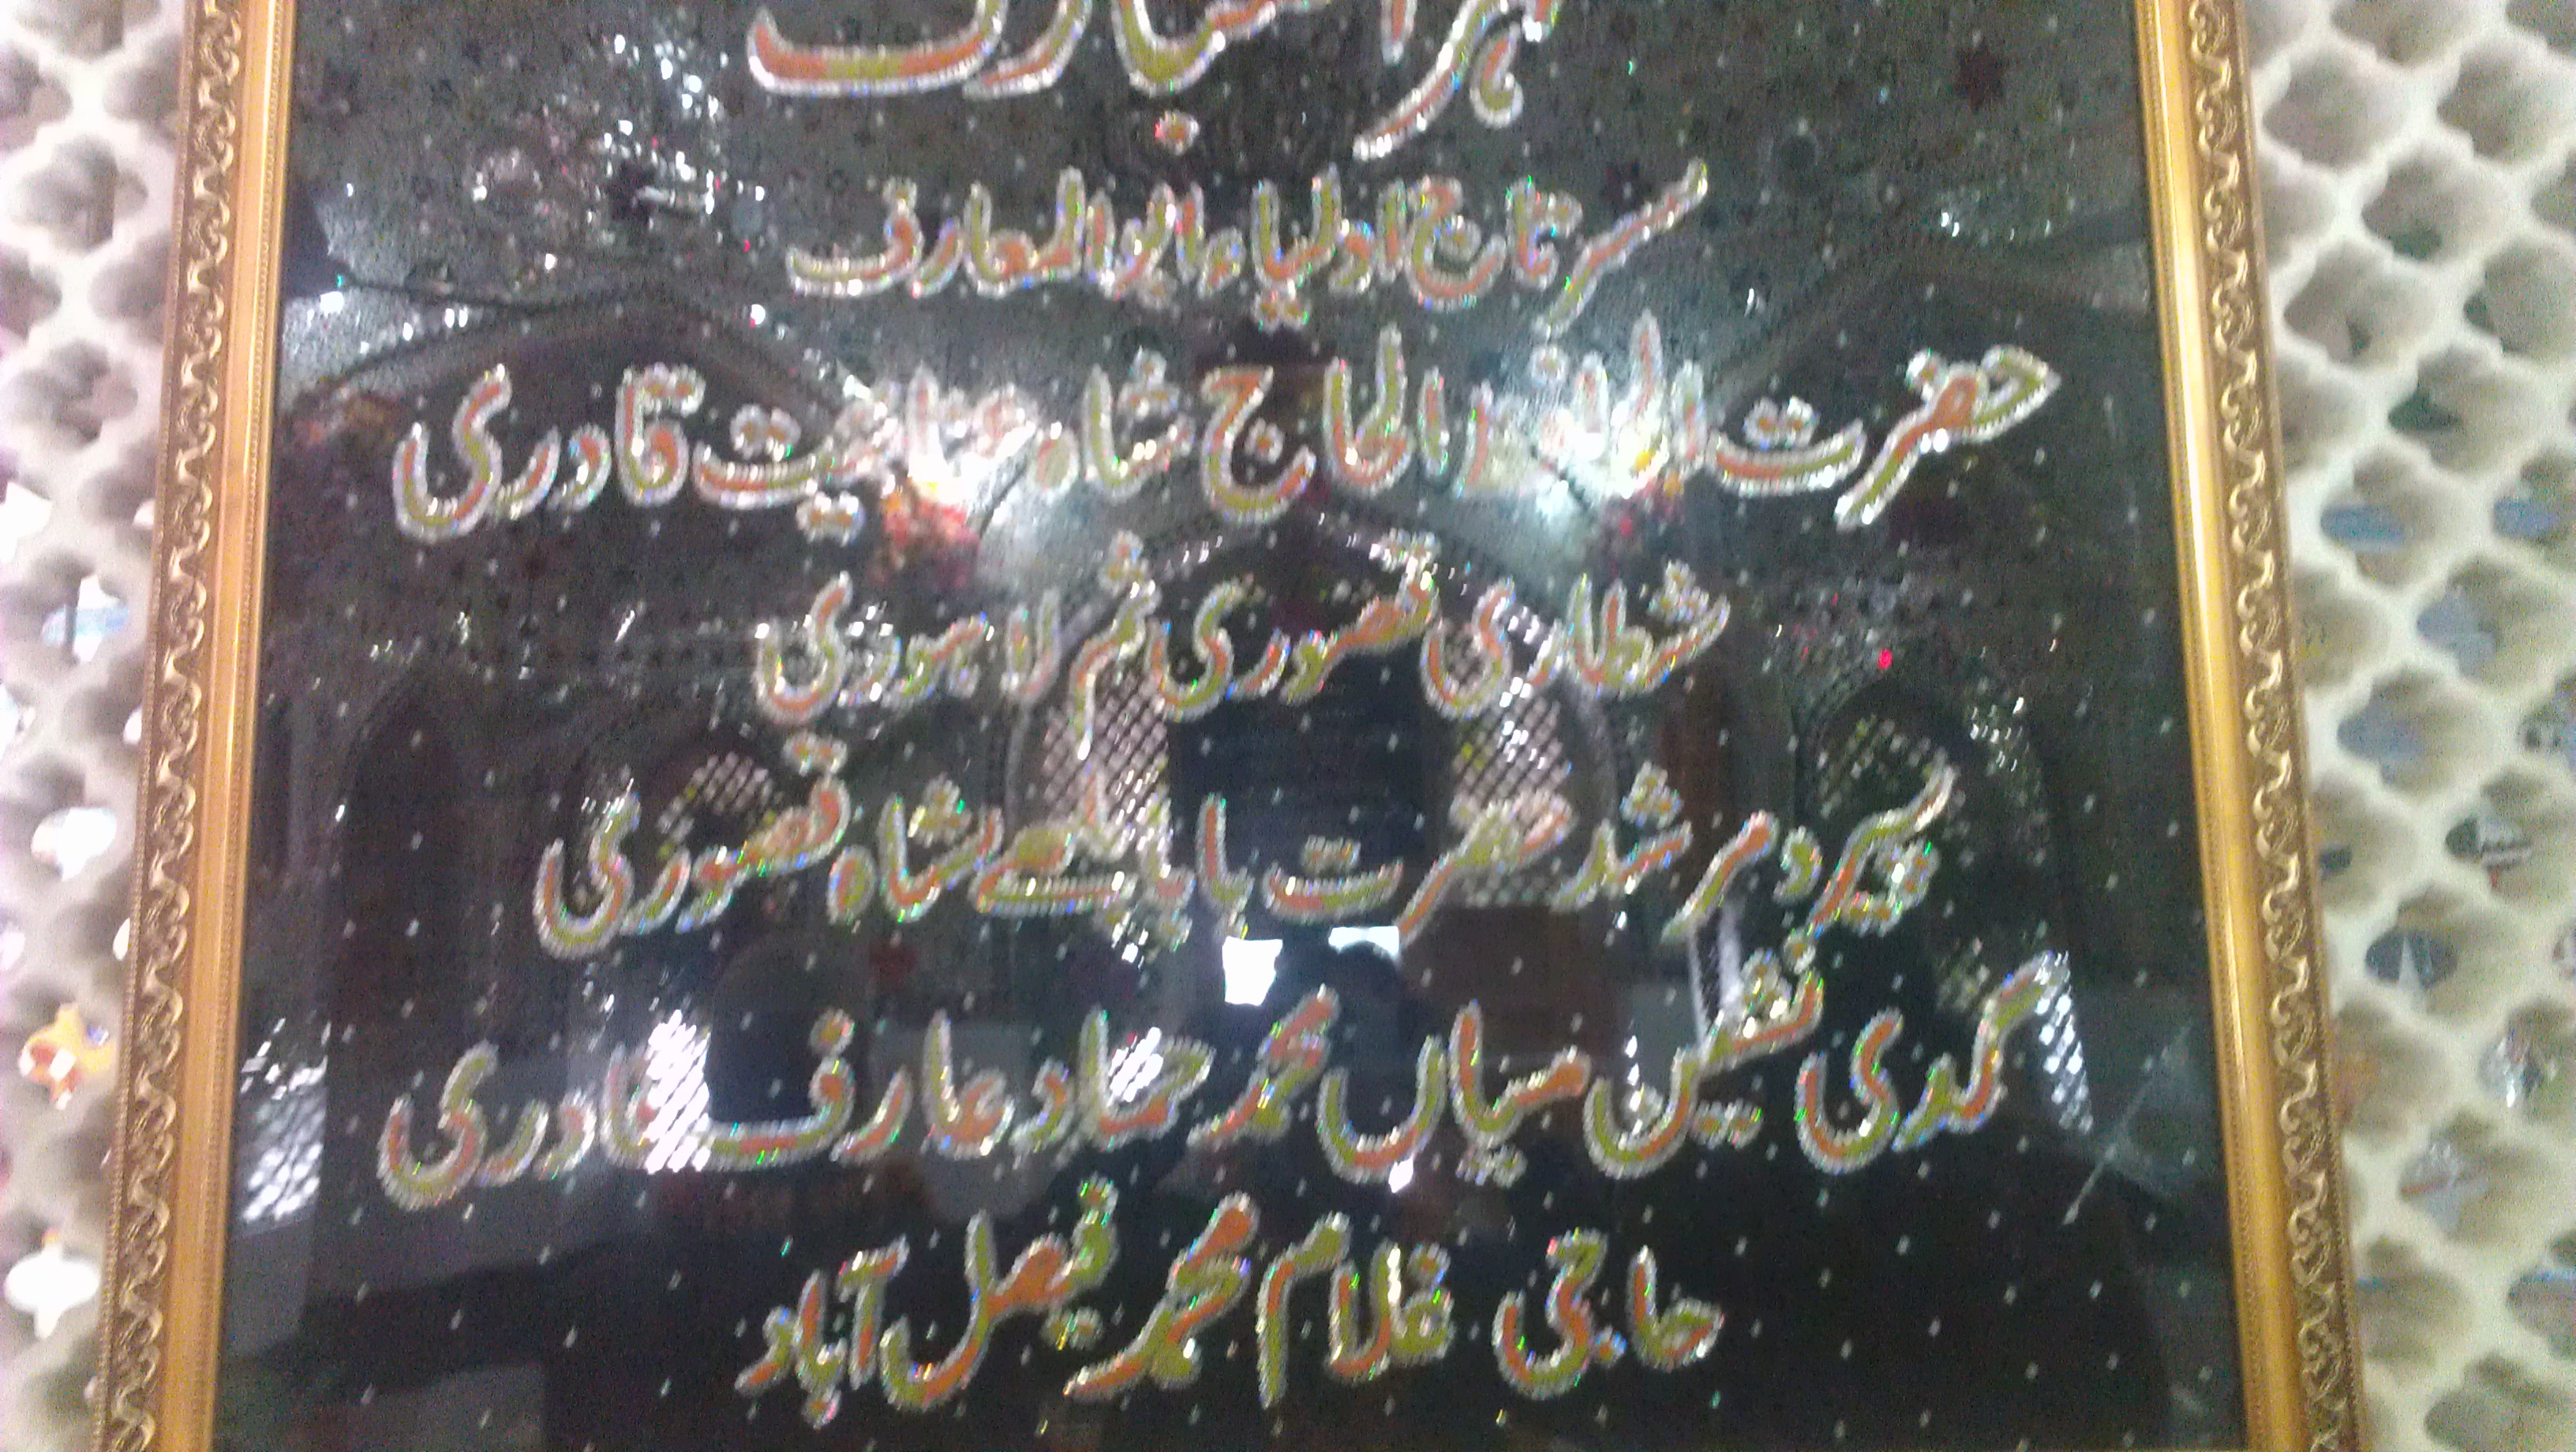 مزار مبارک
سرتاج اولیاء ابوالمعارف
حضرت الحافظ الحاج شاہ عنایت قادری
شطاری قصوری ثم لاہوری
پیر و مرشد حضرت بابا بلھے شاہ قصوری
گدی نشین میاں محمد حماد عارف قادری
حاجی غلام محمد فیصل آباد